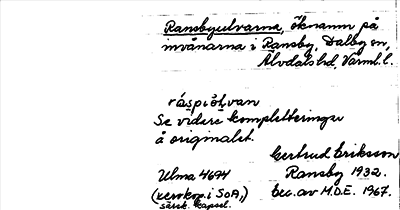 Ransbyulvarna, öknamn på
invånarna i Ransby, Dalby sn,
Älvdals hd, Värml. l.
råspiöt,van
Se vidare kompletteringar
å originalet.
Gertrud Eriksson
Ulma 4694 Ransby 1932.
(xerokop. i SoA,) exc. av M.D.E. 1967.
särsk. kapsel.